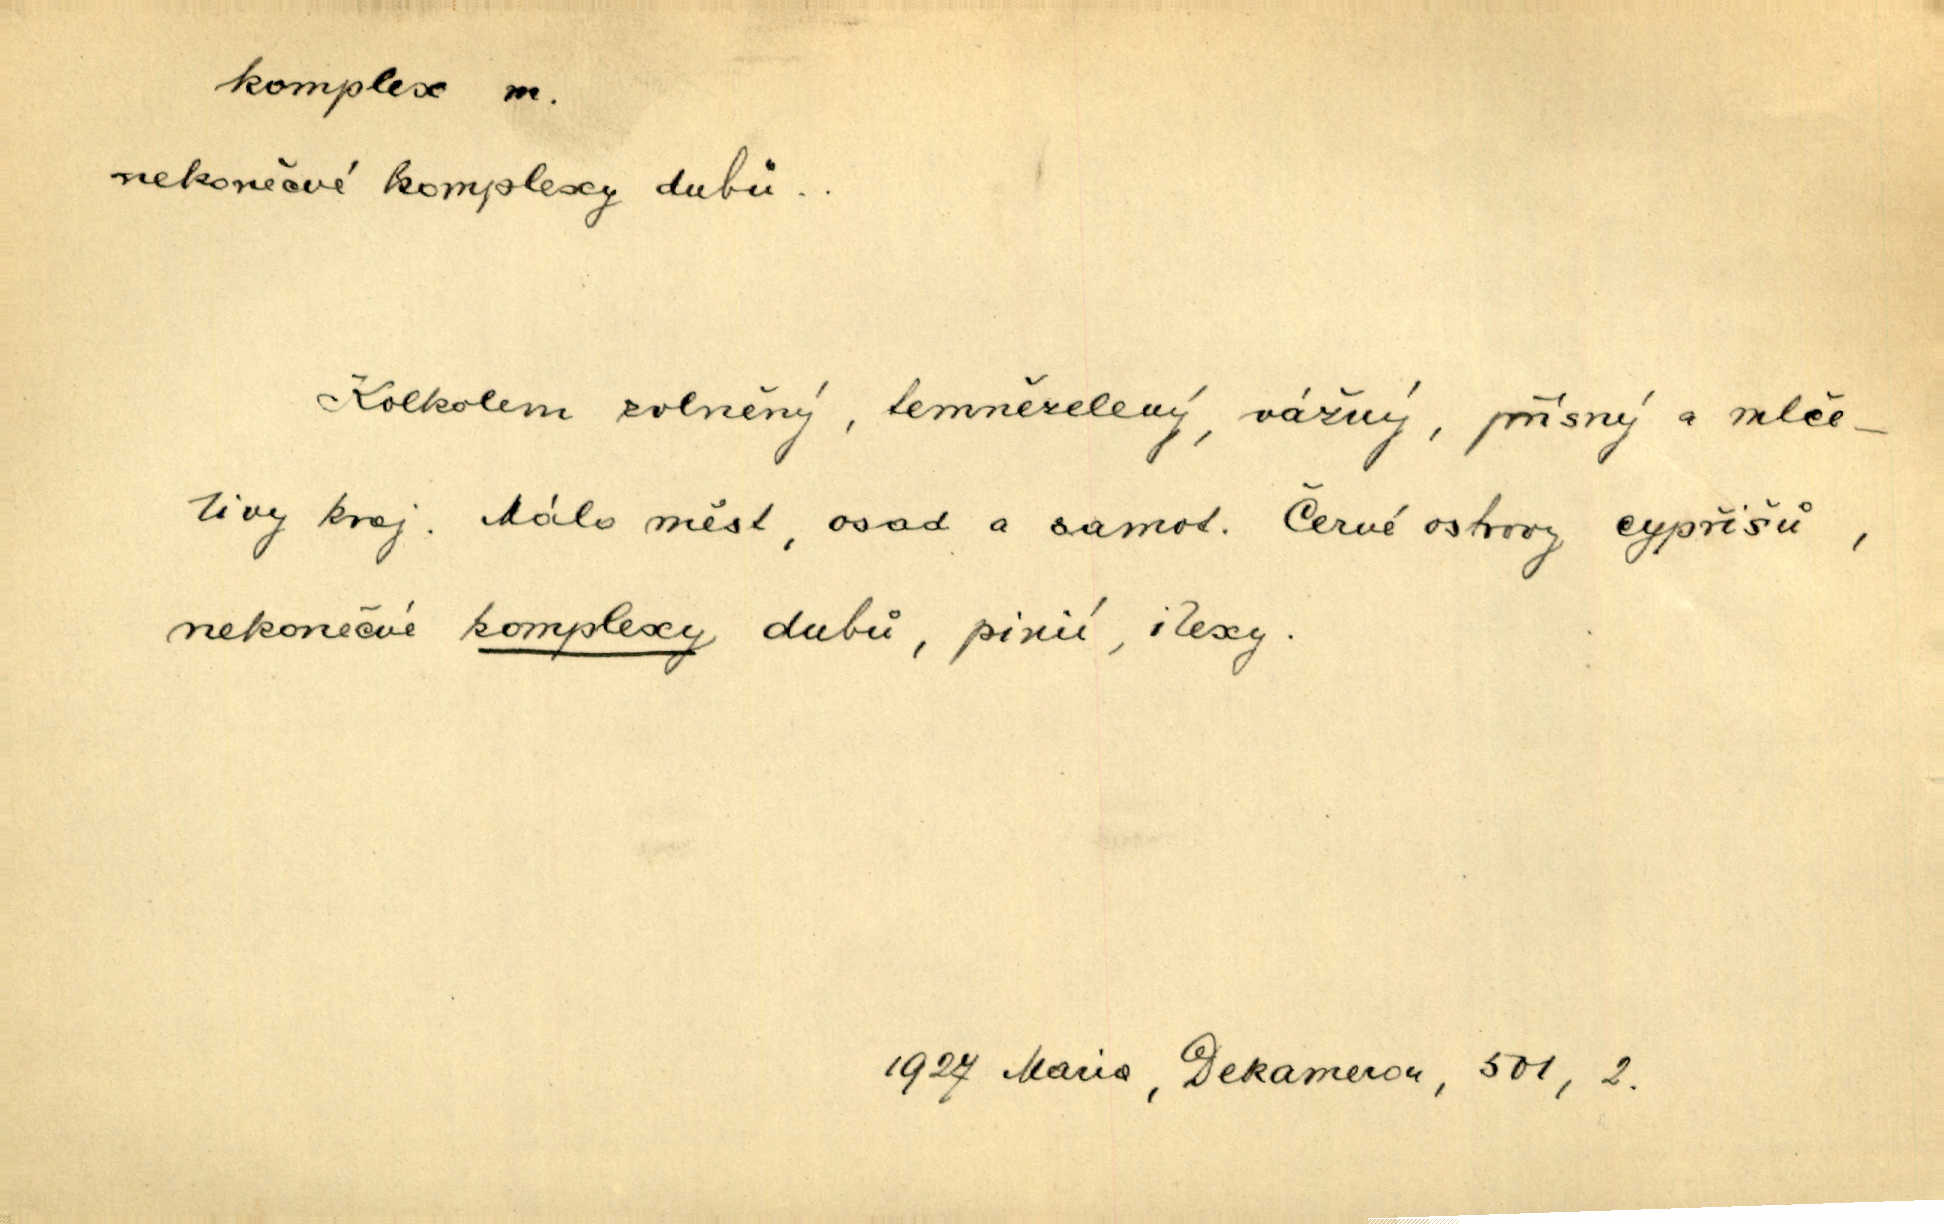 komplex m.
nekonečné komplexy dubů..
Kolkolem zvlněný, temnězelený, vážný, přísný a mlče-
livy kraj. Málo měst, osad a samot. Černé ostrovy cypřišů,
nekonečné komplexy dubů, pinií, ilexy.
1927 Maria, Dekameron, 501, 2.